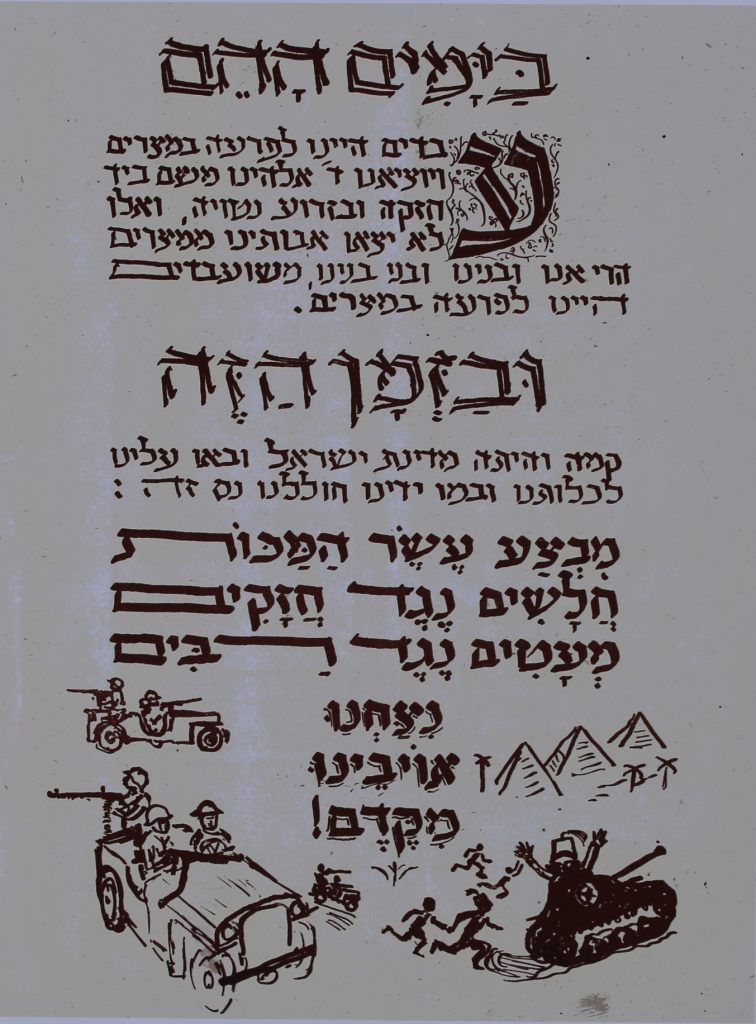 בַּיָּמִים הָהֵם
עבדים היינו לפרעה במצרים
ויוציאנו ד' אלהינו משם ביד
חזקה ובזרוע נטויה, ואלו
לא יצאו אבותינו ממצרים
הרי אנו ובנינו ובני בנינו, משועבדים
היינו לפרעה במצרים.
וּבַזְּמָן הַזֶּה
קמה והיתה מדינת ישראל ובאו עלינו
לכלותנו ובמו ידינו חוללנו נס זה:
מִבְצַע עֶשֶׂר הַמַּכּוֹת
חֲלָשִׁים נֶגֶד חֲזָקִים
מְעָטִים נֶגֶד רַבִּים
נִצַּחְנוּ
אוֹיְבֵינוּ
מִקֶּדֶם!